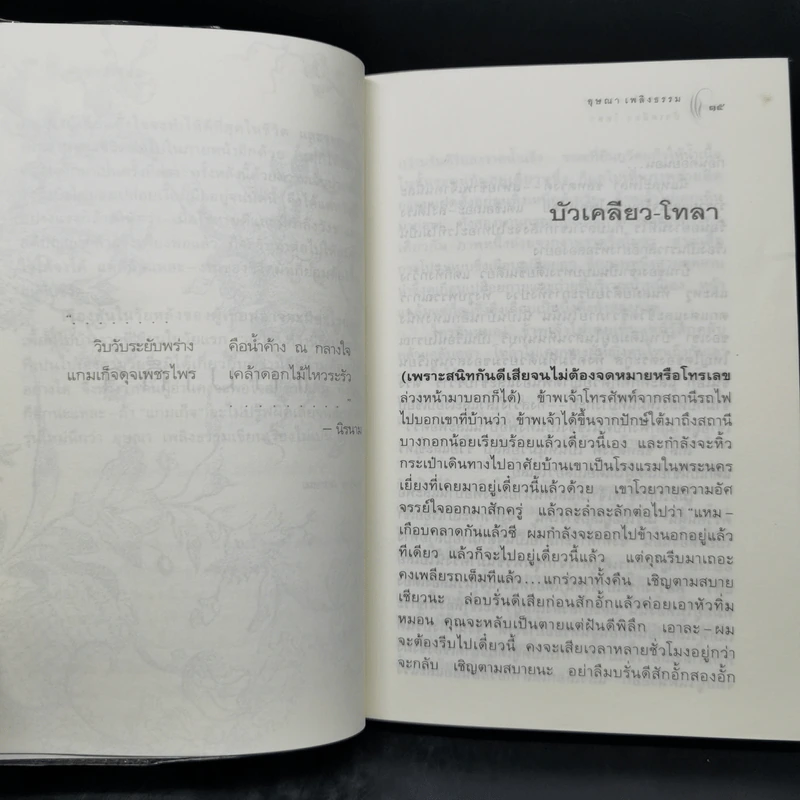 ". . . . . . . . .
วิบวับระยับพร่าง คือน้ำค้าง ณ กลางใจ
แกมเก็จดุจเพชรไพร เคล้าดอกไม้ไหวระรัว
. . . . . . . . . . . . "
— นิรนาม
อุษณา เพลิงธรรม
๑๕
บัวเคลียว-โทลา
(เพราะสนิทกันดีเสียจนไม่ต้องจดหมายหรือโทรเลข
ล่วงหน้ามาบอกก็ได้) ข้าพเจ้าโทรศัพท์จากสถานีรถไฟ
ไปบอกเขาที่บ้านว่า ข้าพเจ้าได้ขึ้นจากปักษ์ใต้มาถึงสถานี
บางกอกน้อยเรียบร้อยแล้วเดี๋ยวนี้เอง และกำลังจะหิ้ว
กระเป๋าเดินทางไปอาศัยบ้านเขาเป็นโรงแรมในพระนคร
เยี่ยงที่เคยมาอยู่เดี๋ยวนี้แล้วด้วย เขาโวยวายความอัศ
จรรย์ใจออกมาสักครู่ แล้วละล่ำละลักต่อไปว่า "แหม–
เกือบคลาดกันแล้วซี ผมกำลังจะออกไปข้างนอกอยู่แล้ว
ทีเดียว แล้วก็จะไปอยู่เดี๋ยวนี้แล้ว แต่คุณรีบมาเถอะ
คงเพลียรถเต็มทีแล้ว...แกร่วมาทั้งคืน เชิญตามสบาย
เชียวนะ ล่อบรั่นดีเสียก่อนสักอั้กแล้วค่อยเอาหัวทิ่ม
หมอน คุณจะหลับเป็นตายแต่ฝันดีพิลึก เอาละ–ผม
จะต้องรีบไปเดี๋ยวนี้ คงจะเสียเวลาหลายชั่วโมงอยู่กว่า
จะกลับ เชิญตามสบายนะ อย่าลืมบรั่นดีสักอั้กสองอั้ก